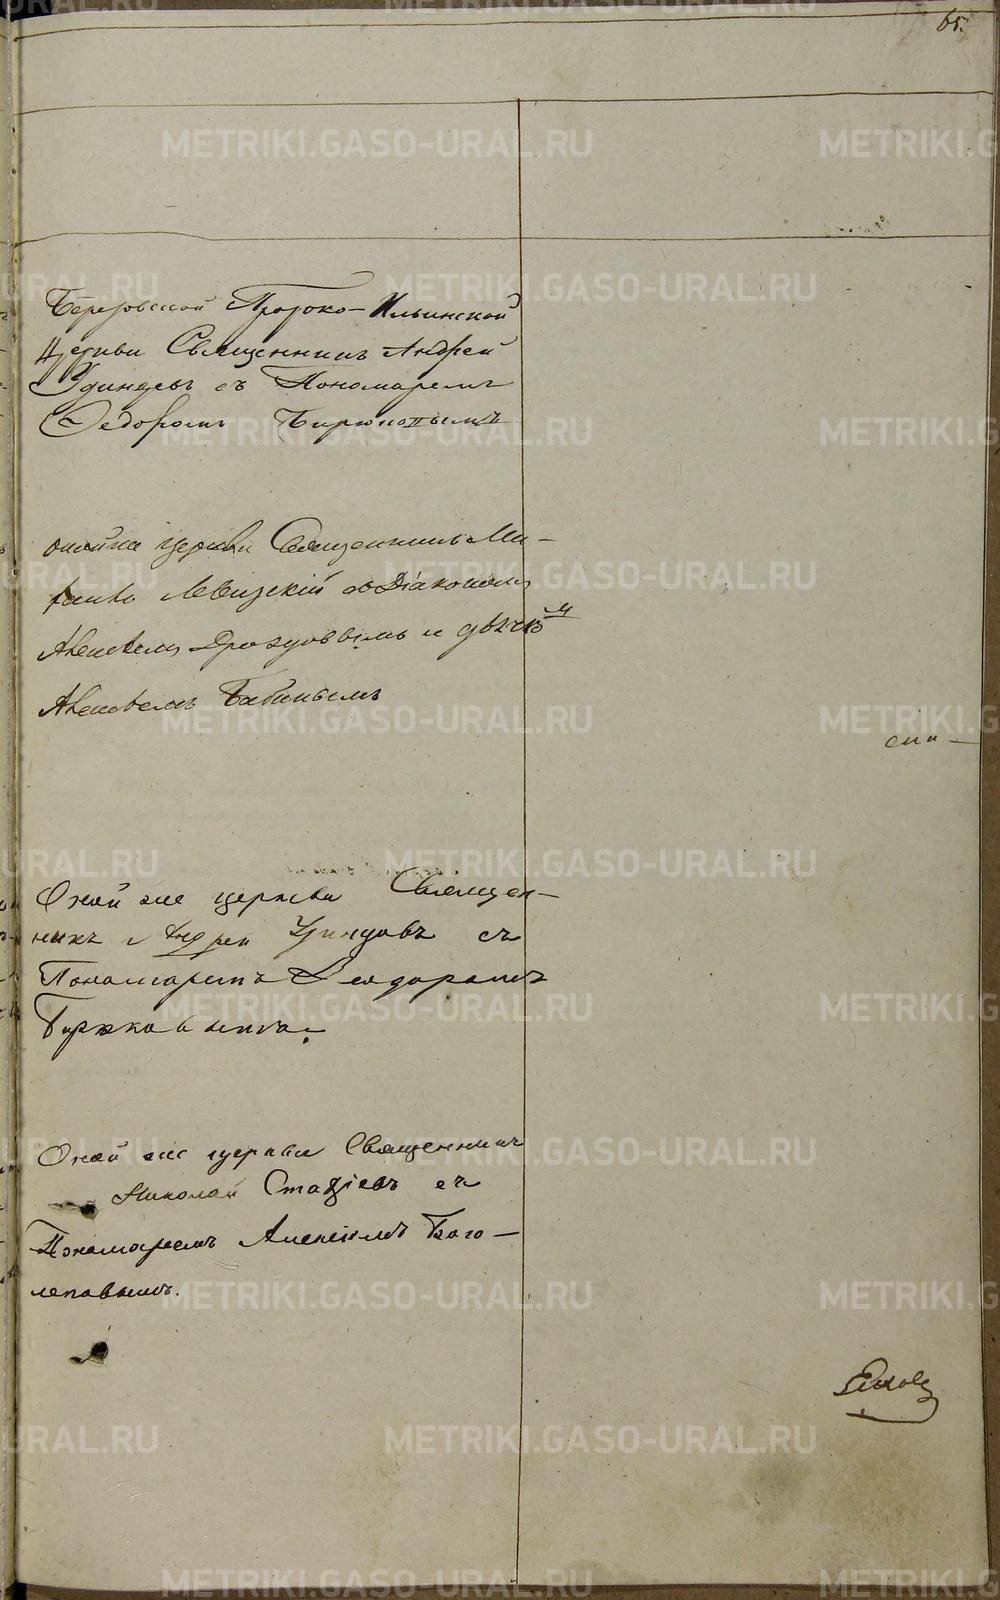 65.
Березовской Пророко-Ильинской
Церкви Священникъ Андрей
Удинцевъ съ Пономаремъ
Ѳедоромъ Бирюковымъ
оной же церкви Священникъ Ми-
хаилъ Левитскій съ Діакономъ
Алексѣемъ Дроздовымъ и дьячкомъ
Алексѣемъ Бабинымъ
Оной же церкви Священ-
никъ Андрей Удинцовъ съ
Пономаремъ Феодоромъ
Бирюковымъ.
Оной же церкви Священникъ
Николай Стафіевъ съ
Пономаремъ Алексіемъ Бого-
леповымъ.
METRIKI.GASO-URAL.RU